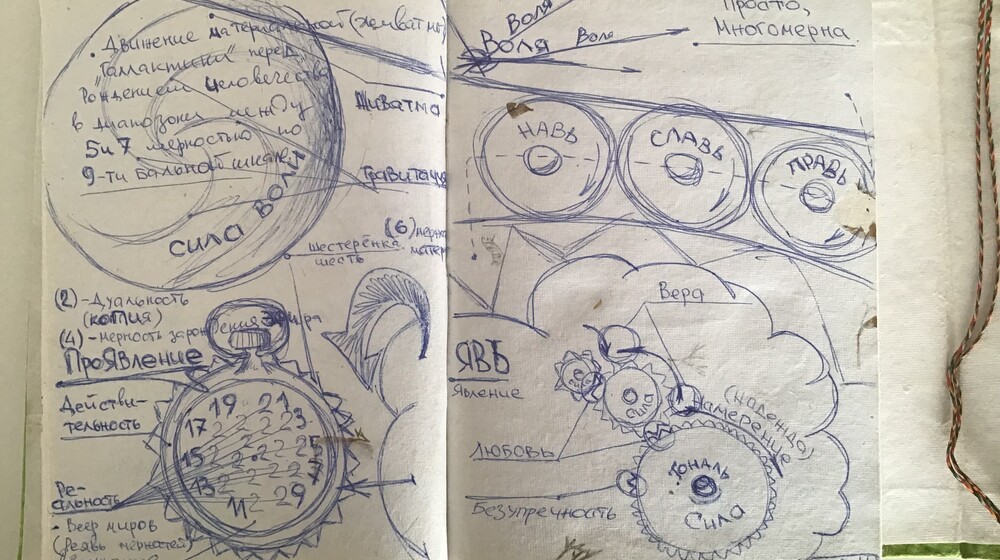 • Движение материальной (живатмы)
"Галлактики" перед
Рождением Человечества
в диапозоне между
5 и 7 мерностью по
9-ти бальной шкале
Живатма
Гравитация
ВОЛИ
сила
(6)
шестерёнка
шесть
(2) - Дуальность
(копия)
(4) - мерность
ПроЯВление
Действи-
тельность
19 21
17 2 2 2 23
15 2 2 2 25
13 2 2 2 27
11 2 29
Ре-
альность
- Веер миров
(Ре явь мерностей)
Воля
Воля
Воля
Просто,
• Многомерна.
НАВЬ
СЛАВЬ
ПРАВЬ
Вера
ЯВЪ
Явление
Сила
(надежда)
Намерение
Любовь
Тональ
Сила
Безупречность